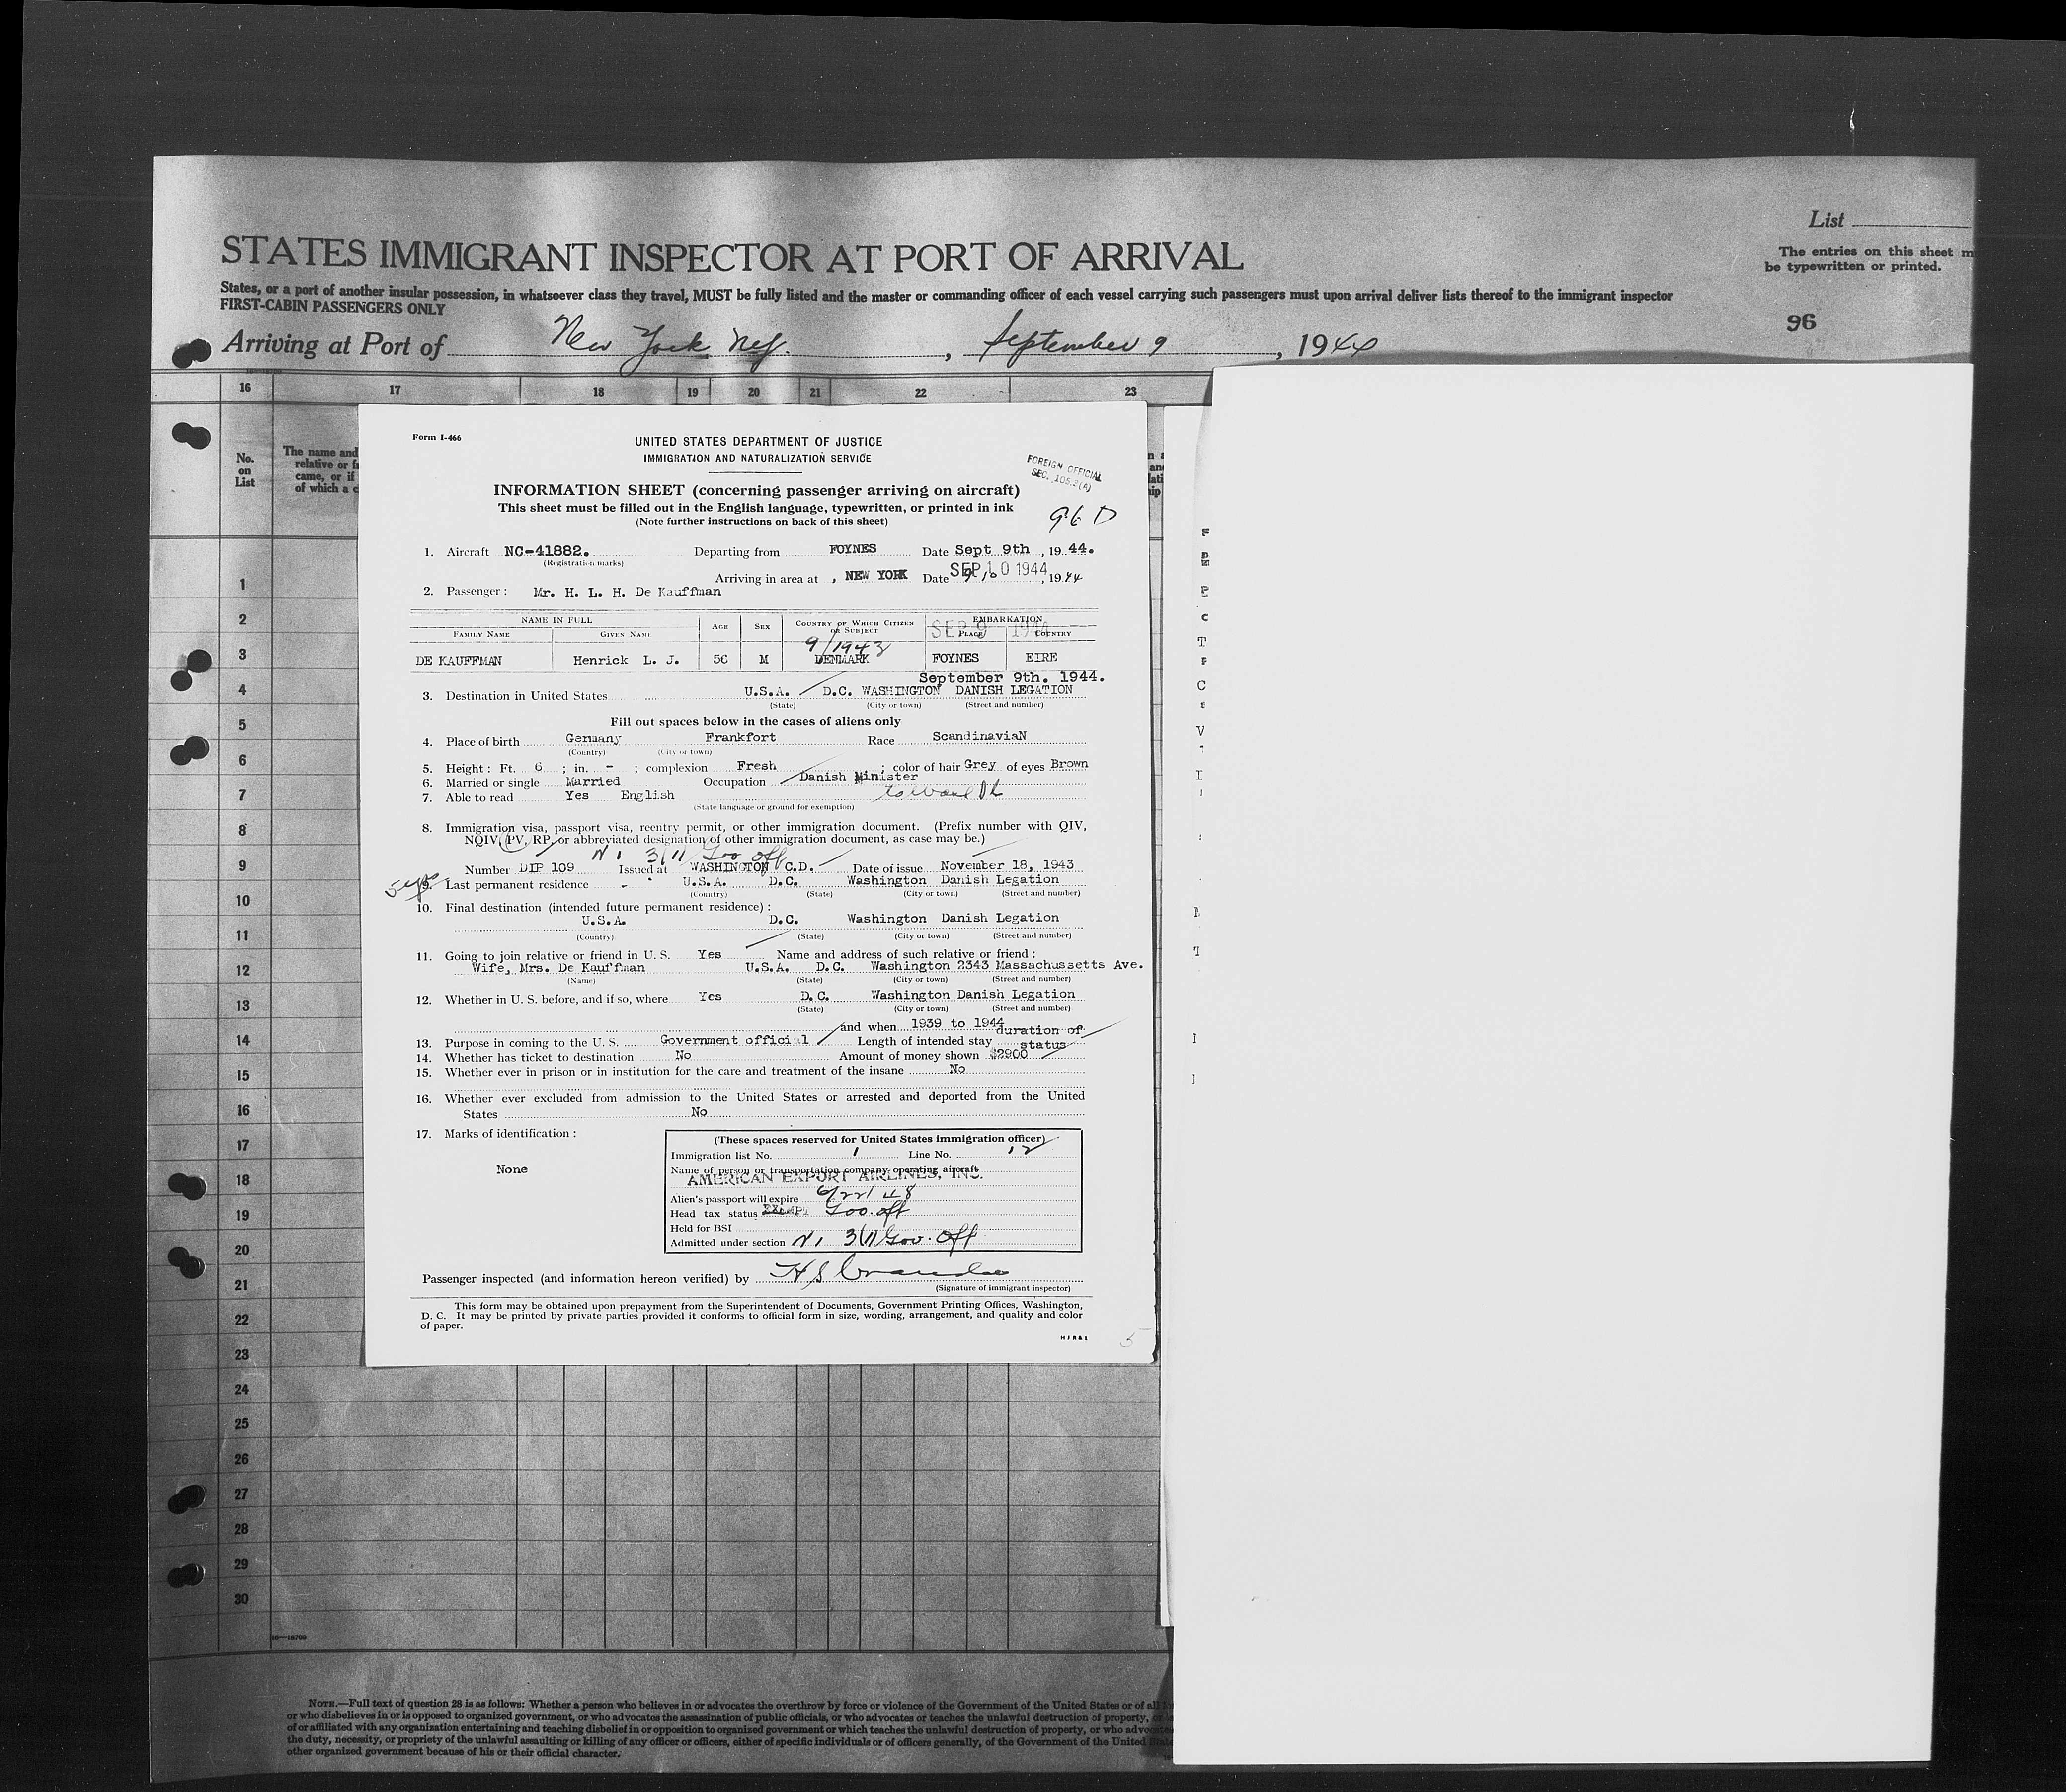 List
STATES IMMIGRANT INSPECTOR AT PORT OF ARRIVAL
The entries on this sheet m
be typewritten or printed.
States, or a port of another insular possession, in whatsoever class they travel, MUST be fully listed and the master or commanding officer of each vessel carrying such passengers must upon arrival deliver lists thereof to the immigrant inspector
FIRST-CABIN PASSENGERS ONLY
96
Arriving at Port of New York, N.Y. , September 9 , 1944
16 17 18 19 20 21 22 23
No.
on
List
The name and
relative or f
came, or if
of which a c
Form I-466
UNITED STATES DEPARTMENT OF JUSTICE
IMMIGRATION AND NATURALIZATION SERVICE
FOREIGN OFFICIAL
SEC. 105.3(A)
INFORMATION SHEET (concerning passenger arriving on aircraft)
This sheet must be filled out in the English language, typewritten, or printed in ink
(Note further instructions on back of this sheet)
96 D
1. Aircraft NC-41882. Departing from FOYNES Date Sept 9th , 19 44.
(Registration marks)
Arriving in area at , NEW YORK Date SEP 10 1944 9/10 , 1944
2. Passenger : Mr. H. L. H. De Kauffman
NAME IN FULL AGE SEX COUNTRY OF WHICH CITIZEN OR SUBJECT EMBARKATION
FAMILY NAME GIVEN NAME PLACE COUNTRY
SEP 9 1944
9/1943
DE KAUFFMAN Henrick L. J. 50 M DENMARK FOYNES EIRE
September 9th. 1944.
3. Destination in United States U.S.A. D.C. WASHINGTON DANISH LEGATION
(State) (City or town) (Street and number)
Fill out spaces below in the cases of aliens only
4. Place of birth Germany Frankfort Race ScandinaviaN
(Country) (City or town)
5. Height : Ft. 6 ; in. - ; complexion Fresh ; color of hair Grey of eyes Brown
6. Married or single Married Occupation Danish Minister
7. Able to read Yes English
(State language or ground for exemption)
8. Immigration visa, passport visa, reentry permit, or other immigration document. (Prefix number with QIV,
NQIV, PV, RP, or abbreviated designation of other immigration document, as case may be.)
3(1) Gov off
Number DIP 109 Issued at WASHINGTON C.D. Date of issue November 18, 1943
5 yrs
9. Last permanent residence - U.S.A. D.C. Washington Danish Legation
(Country) (State) (City or town) (Street and number)
10. Final destination (intended future permanent residence) :
U.S.A. D.C. Washington Danish Legation
(Country) (State) (City or town) (Street and number)
11. Going to join relative or friend in U. S. Yes Name and address of such relative or friend :
Wife, Mrs. De Kauffman U.S.A. D.C. Washington 2343 Massachussetts Ave.
(Name) (State) (City or town) (Street and number)
12. Whether in U. S. before, and if so, where Yes D.C. Washington Danish Legation
(State) (City or town) (Street and number)
and when 1939 to 1944
13. Purpose in coming to the U. S. Government official Length of intended stay duration of status
14. Whether has ticket to destination No Amount of money shown $2900
15. Whether ever in prison or in institution for the care and treatment of the insane No
16. Whether ever excluded from admission to the United States or arrested and deported from the United
States No
17. Marks of identification :
None
(These spaces reserved for United States immigration officer)
Immigration list No. 1 Line No. 12
Name of person or transportation company operating aircraft
AMERICAN EXPORT AIRLINES, INC.
Alien's passport will expire 6/22/48
Head tax status EXEMPT Gov. off
Held for BSI
Admitted under section 3(1) Gov. Off
Passenger inspected (and information hereon verified) by
(Signature of immigrant inspector)
This form may be obtained upon prepayment from the Superintendent of Documents, Government Printing Offices, Washington,
D. C. It may be printed by private parties provided it conforms to official form in size, wording, arrangement, and quality and color
of paper.
H J R & L
5
1
2
3
4
5
6
7
8
9
10
11
12
13
14
15
16
17
18
19
20
21
22
23
24
25
26
27
28
29
30
16—18709
NOTE.—Full text of question 28 is as follows: Whether a person who believes in or advocates the overthrow by force or violence of the Government of the United States or of all
or who disbelieves in or is opposed to organized government, or who advocates the assassination of public officials, or who advocates or teaches the unlawful destruction of property,
of or affiliated with any organization entertaining and teaching disbelief in or opposition to organized government or which teaches the unlawful destruction of property, or who advoc
the duty, necessity, or propriety of the unlawful assaulting or killing of any officer or officers, either of specific individuals or of officers generally, of the Government of the United
other organized government because of his or their official character.